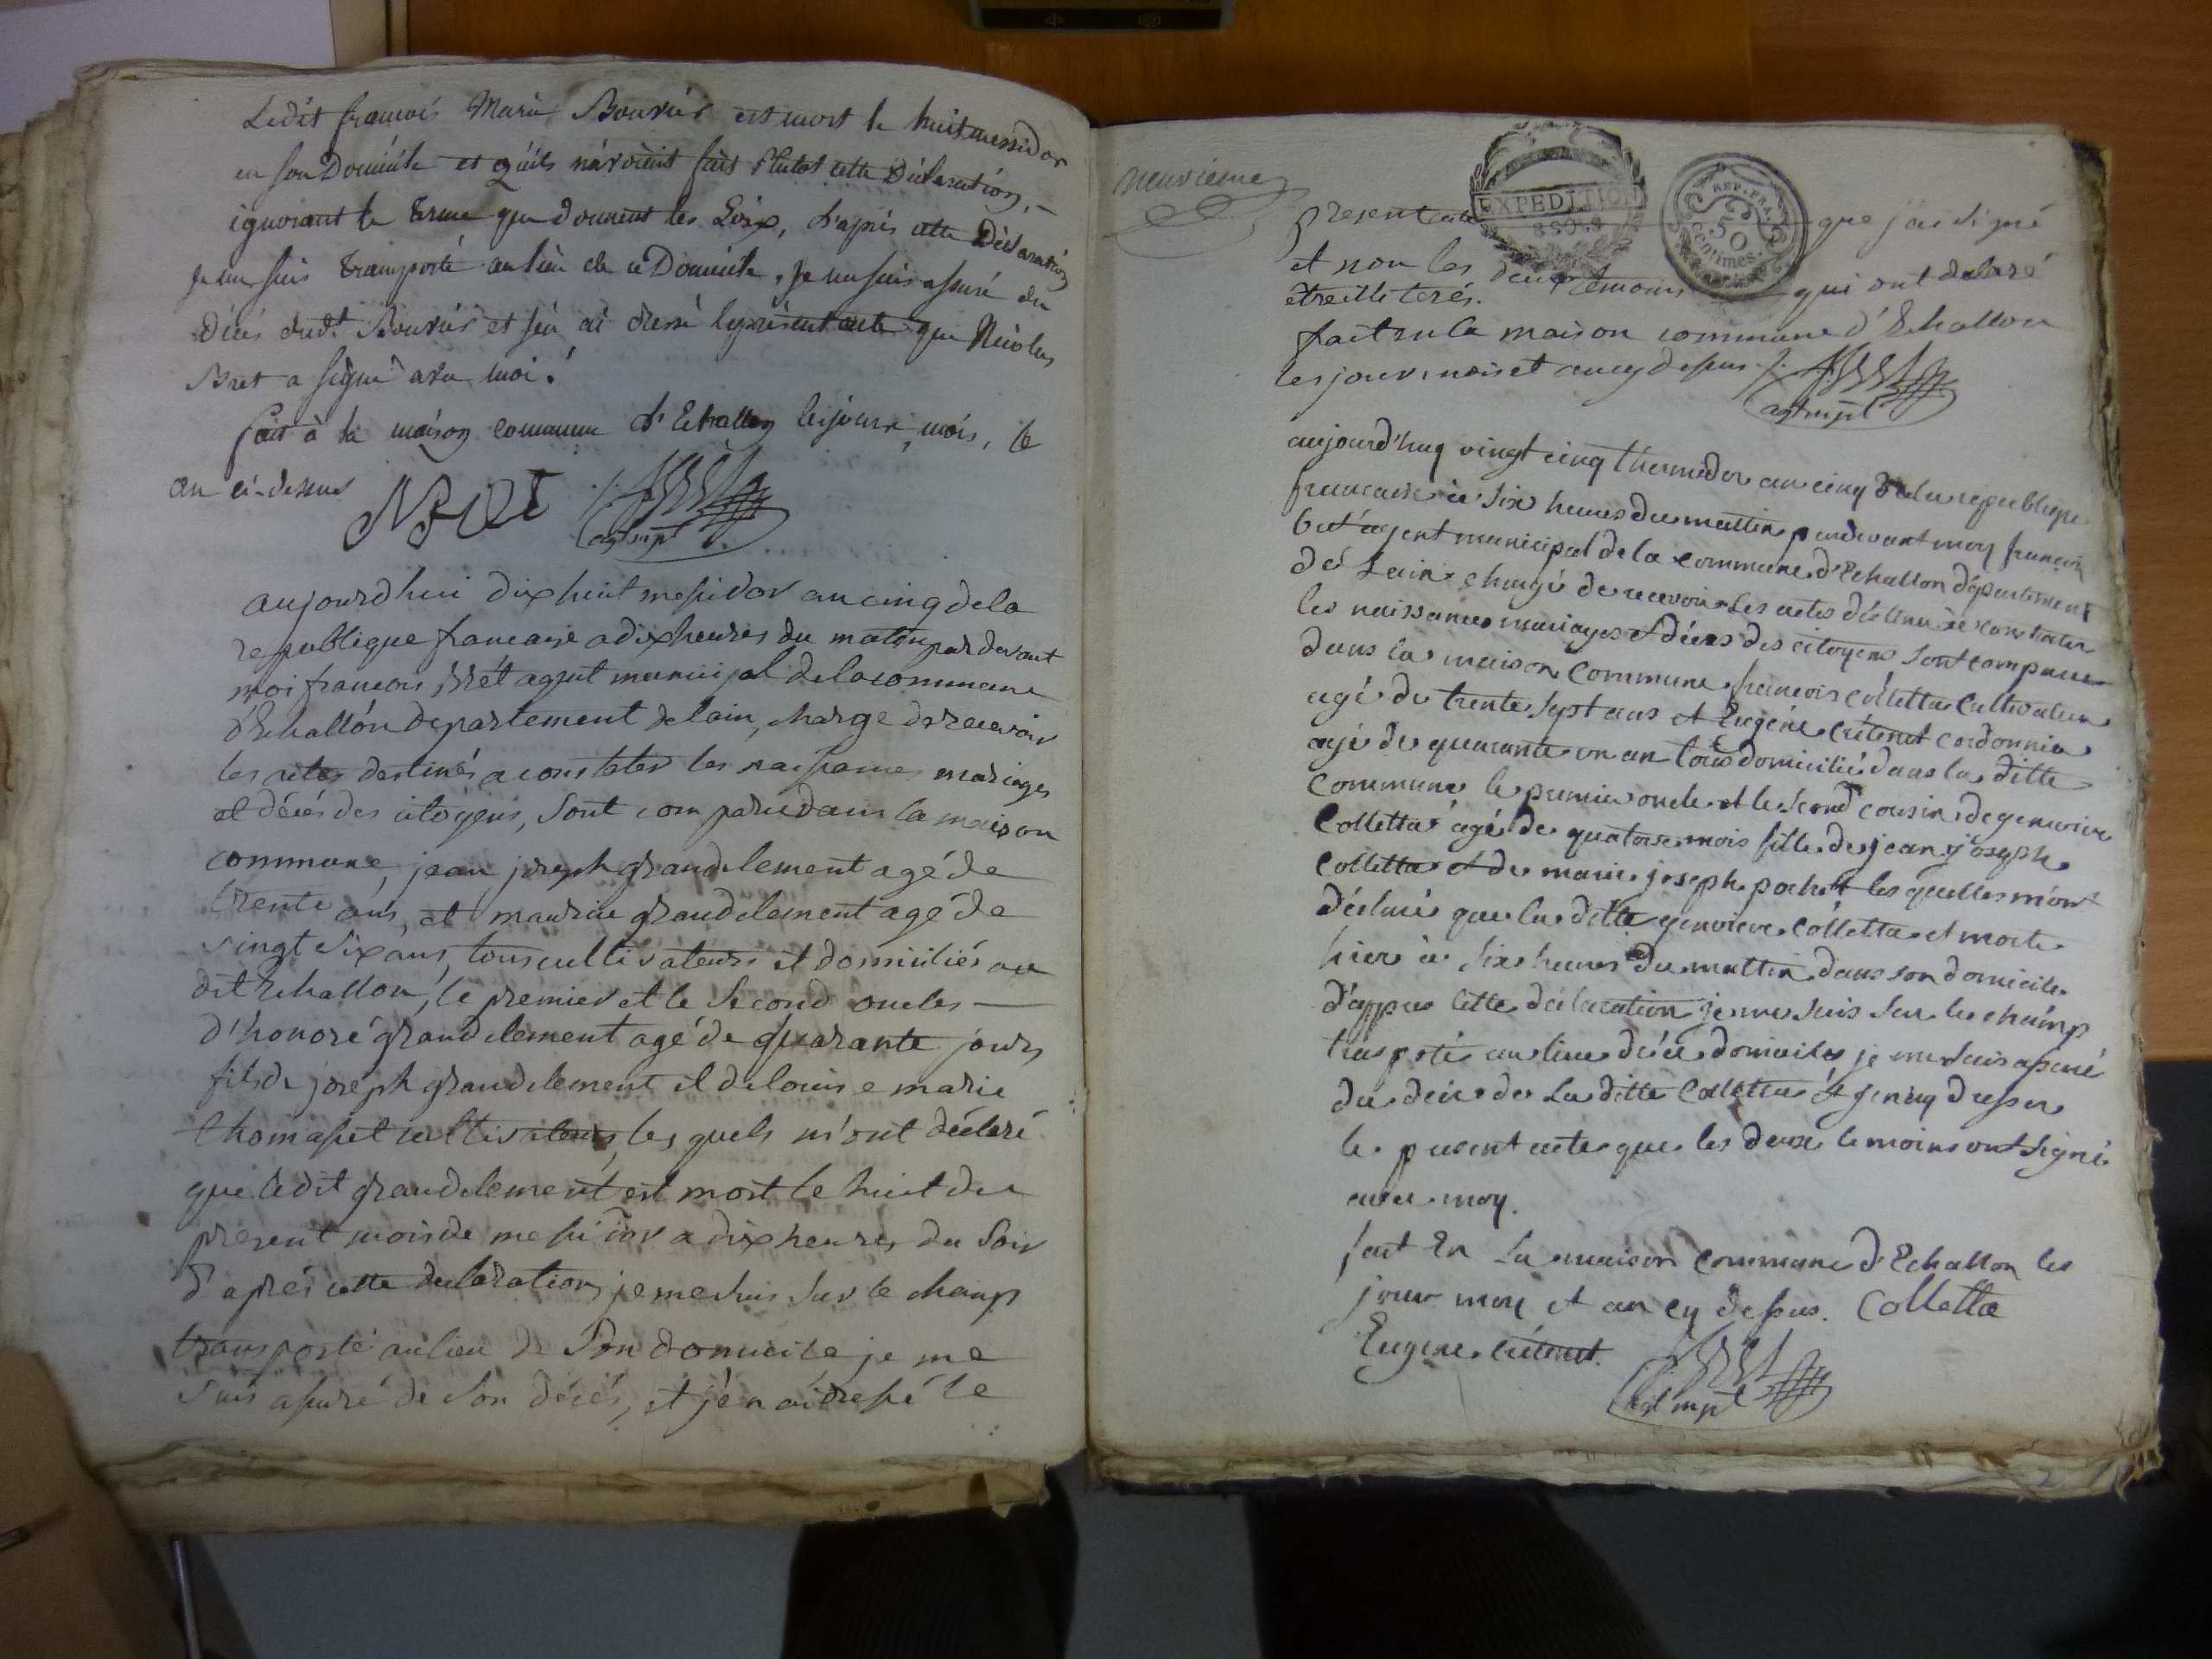 Ledit francois Marie Bouvier est mort le huit messidor
en son Domicile et quils n'avoient fait Plutot cette Déclaration,
ignorant le terme que donnent les Loix, d'après cette Déclaration
Je me suis transporté au lieu de ce Domicile, Je me suis assuré du
Décès dudt. Bouvier et j'en ai dressé le présent acte que Nicolas
Bret a signé avec moi.
fait à la maison commune d'Echallon les jour, mois, le
an ci-dessus NBRET
agt mpl
aujourdhui dix huit messidor an cinq de la
republique francaise a dix heures du matin par devant
moi francois Brét agent municipal de la commune
d'Echallon departement de lain, charge de recevoir
les actes destinés a constater les naissances mariages
et décés des citoyens, sont comparu dans la maison
commune, jean joseph grandclement agé de
trente ans, et maurice grandclement agé de
vingt six ans, tous cultivateurs et domiciliés au
dit Echallon, le premier et le second oncles
d'honoré grandclement agé de quarante jours
fils de joseph grandclement et de louise marie
thomasset cultivateurs, les quels m'ont déclaré
que ledit grandclement est mort le huit du
present mois de messidor a dix heures du soir
d'aprés cette declaration, je me suis sur le champ
transporté au lieu de son domicile, je me
suis assuré de son décés, et j'en ai dressé le
neuvieme
present acte que j'ai signé
EXPEDITION
REP. FRA.
50
centimes.
et non les deux temoins qui ont declaré
etre illiterés.
fait en la maison commune d'Echallon
les jour, mois et an cy dessus.
agt mpl
aujourd'huy vingt cinq thermidor an cinq de la republique
francaise à six heures du mattin pardevant moy francois
bret agent municipal de la commune d'Echallon département
de Lain chargé de recevoir les actes déstiné à constater
les naissances mariages et décés des citoyens sont comparu
dans la maison commune francois Collétta Cultivateur
agé de trente sept ans et Eugéne Crétenet cordonnier
agé de quarante un an tous domicilié dans la ditte
Commune le premier oncle et le second cousin de genevieve
Colletta agé de quatorse mois fille de jean joseph
Colletta et de marie joseph pochet les quelles m'ont
déclaré que la ditte genevieve Colletta et morte
hier à six heures du mattin dans son domicile
d'appres cette déclaration je me suis sur le champ
trasporté au lieu de ce domicile je me suis assuré
du décé de la ditte Colletta et j'en ay dresser
le present acte que les deux temoins ont signé
avec moy.
fait En la maison commune d'Echallon les
jour moy et an cy dessus. Colletta
Eugene Crétenet.
agt mpl